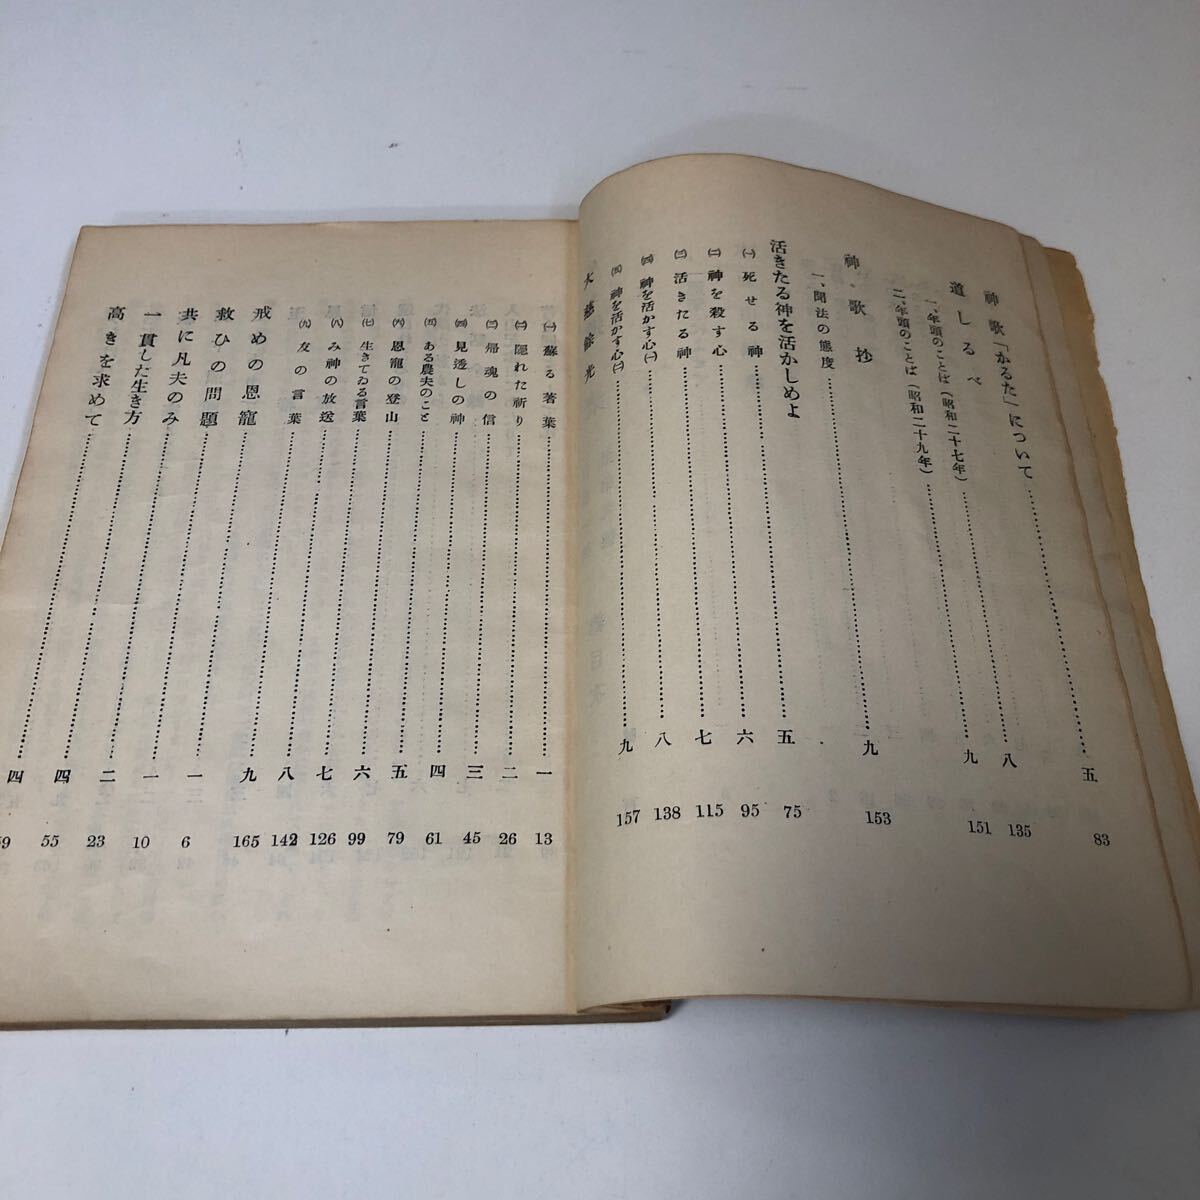 神歌「かるた」について……五 83
道しるべ
一、年頭のことば(昭和二十七年)……八 135
二、年頭のことば(昭和二十九年)……九 151
神・歌抄
一、聞法の態度……九 153
活きたる神を活かしめよ
㈠ 死せる神……五 75
㈡ 神を殺す心……六 95
㈢ 活きたる神……七 115
㈣ 神を活かす心㈠……八 138
㈤ 神を活かす心㈡……九 157
㈠ 蘇る著葉……一 13
㈡ 隠れた祈り……二 26
㈢ 帰魂の信……三 45
㈣ 見透しの神……四 61
㈤ ある農夫のこと……五 79
㈥ 恩寵の登山……六 99
㈦ 生きてゐる言葉……七 126
㈧ み神の放送……八 142
㈨ 友の言葉……九 165
戒めの恩寵……一 6
救ひの問題……一 10
共に凡夫のみ……二 23
一貫した生き方……四 55
高きを求めて……四